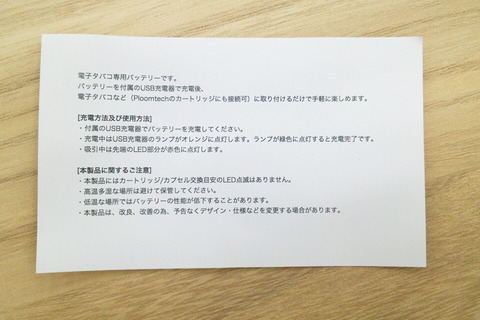 電子タバコ専用バッテリーです。
バッテリーを付属のUSB充電器で充電後、
電子タバコなど（Ploomtechのカートリッジにも接続可）に取り付けるだけで手軽に楽しめます。
[充電方法及び使用方法]
・付属のUSB充電器でバッテリーを充電してください。
・充電中はUSB充電器のランプがオレンジに点灯します。ランプが緑色に点灯すると充電完了です。
・吸引中は先端のLED部分が赤色に点灯します。
[本製品に関するご注意]
・本製品にはカートリッジ/カプセル交換目安のLED点滅はありません。
・高温多湿な場所は避けて保管してください。
・低温な場所ではバッテリーの性能が低下することがあります。
・本製品は、改良、改善の為、予告なくデザイン・仕様などを変更する場合があります。